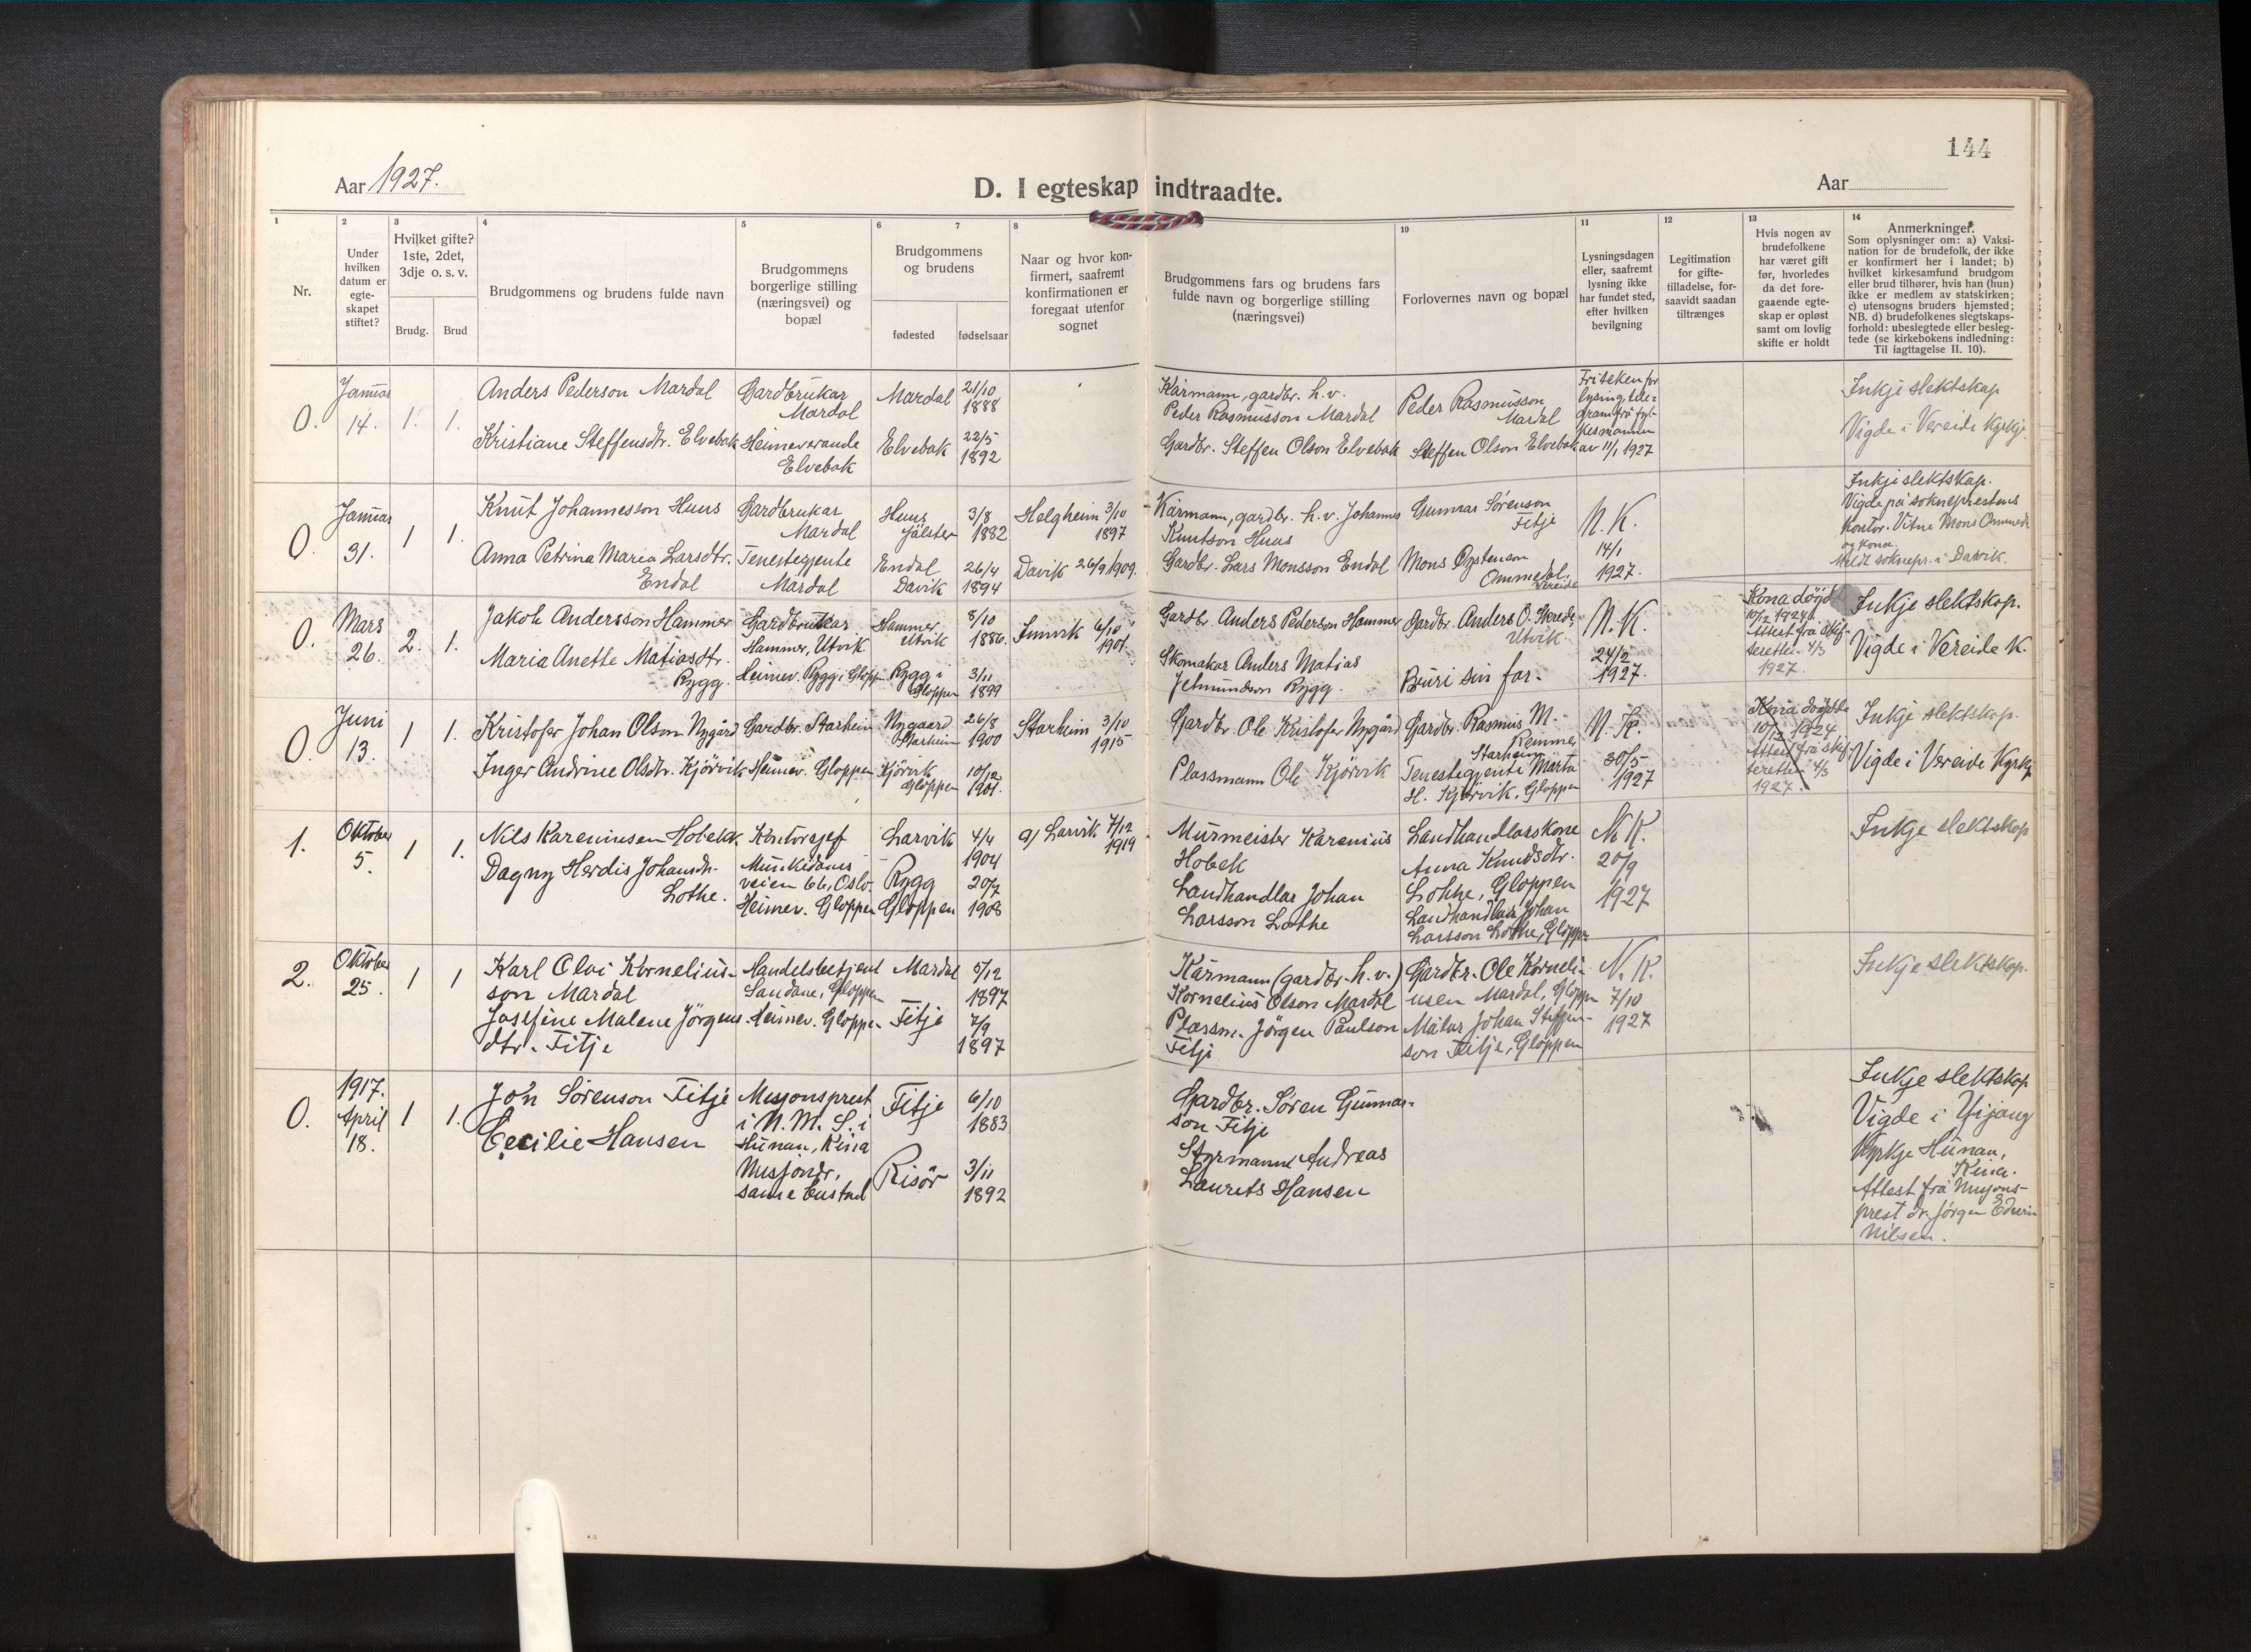 144
Aar 1927.
D. I egteskap indtraadte.
Aar
1
2
3
4
5
6
7
8
10
11
12
13
14
Nr.
Under
hvilken
datum er
egte-
skapet
stiftet?
Hvilket gifte?
1ste, 2det,
3dje o. s. v.
Brudg.
Brud
Brudgommens og brudens fulde navn
Brudgommens
borgerlige stilling
(næringsvei) og
bopæl
Brudgommens
og brudens
fødested
fødselsaar
Naar og hvor kon-
firmert, saafremt
konfirmationen er
foregaat utenfor
sognet
Brudgommens fars og brudens fars
fulde navn og borgerlige stilling
(næringsvei)
Forlovernes navn og bopæl
Lysningsdagen
eller, saafremt
lysning ikke
har fundet sted,
efter hvilken
bevilgning
Legitimation
for gifte-
tilladelse, for-
saavidt saadan
tiltrænges
Hvis nogen av
brudefolkene
har været gift
før, hvorledes
da det fore-
gaaende egte-
skap er opløst
samt om lovlig
skifte er holdt
Anmerkninger.
Som oplysninger om: a) Vaksi-
nation for de brudefolk, der ikke
er konfirmert her i landet; b)
hvilket kirkesamfund brudgom
eller brud tilhører, hvis han (hun)
ikke er medlem av statskirken;
c) utensogns bruders hjemsted;
NB. d) brudefolkenes slegtskaps-
forhold: ubeslegtede eller besleg-
tede (se kirkebokens indledning:
Til iagttagelse II. 10).
0.
Januar
14.
1.
1.
Anders Pederson Mardal
Kristiane Steffensdtr. Elvebak
Gardbrukar
Mardal
Heimeverande
Elvebak
Mardal
Elvebak
21/10
1888
22/5
1892
Kårmann, gardbr. h.v.
Peder Rasmusson Mardal
Gardbr. Steffen Olson Elvebak
Peder Rasmusson
Mardal
Steffen Olson Elvebak
Friteken for
lysing, tele-
gram frå fyl-
kesmannen
av 11/1 1927
Inkje slektskap
Vigde i Vereide Kyrkje.
0.
Januar
31.
1
1.
Knut Johannesson Huus
Anna Petrina Maria Larsdtr.
Endal
Gardbrukar
Mardal
Tenestegjente
Mardal
Huus
Jølster
Endal
Davik
3/8
1882
26/4
1894
Helgheim 3/10
1897
Davik 26/9 1909.
Kårmann, gardbr. h.v. Johannes
Knutson Huus
Gardbr. Lars Monsson Endal
Gunnar Sørenson
Fitje
Mons Øystenson
Ommedal.
Vereide
N. K.
14/1
1927.
Inkje slektskap.
Vigde på sokneprestens
kontor. Vitne Mons Ommedal
og kona.
Meldt soknepr. i Davik.
0.
Mars
26.
2.
1.
Jakob Andersson Hammer
Maria Anette Matiasdtr.
Rygg.
Gardbrukar
Hammer, Utvik
Heimev. Rygg i Gloppen
Hammer
Utvik
Rygg i
Gloppen
8/10
1886.
3/11
1899
Innvik 6/10
1901.
Gardbr. Anders Pederson Hammer
Skomakar Anders Matias
Jetmundson Rygg.
Gardbr. Anders O. Skrede,
Utvik
Bruri sin far.
N. K.
24/2
1927.
Kona døydde
10/12 1924.
Attest frå skif-
teretten 4/3
1927.
Inkje slektskap.
Vigde i Vereide K.
0.
Juni
13.
1
1.
Kristofer Johan Olson Nygård
Inger Andrine Olsdtr. Kjörvik
Gardbr. Starheim
Heimev. Gloppen
Nygaard
Starheim
Kjörvik
Gloppen
26/8
1900
10/12
1901.
Starheim 3/10
1915
Gardbr. Ole Kristofer Nygård
Plassmann Ole Kjörvik
Gardbr. Rasmus M.
Remme
Starheim
Tenestegjente Marta
H. Kjörvik, Gloppen
N. K.
30/5
1927
Kona døydde
10/12 1924
Attest frå skif-
teretten 4/3
1927.
Inkje slektskap.
Vigde i Vereide Kyrkje
1.
Oktober
5.
1
1.
Nils Kareniusen Hobek
Dagny Herdis Johansdtr.
Lothe.
Kontorsjef
Munkedams-
veien 66, Oslo.
Heimev. Gloppen
Larvik
Rygg
Gloppen
4/4
1904
20/7
1908
a) Larvik 7/12
1919
Murmeister Karenius
Hobek
Landhandlar Johan
Larsson Lothe
Landhandlarskone
Anna Knudsdtr.
Lothe, Gloppen
Landhandlar Johan
Larsson Lothe, Gloppen
N. K.
20/9
1927
Inkje slektskap
2.
Oktober
25.
1
1
Karl Olai Kornelius-
son Mardal
Josefine Malene Jörgens-
dtr. Fitje
Handelsbetjent
Sandane, Gloppen
Heimev. Gloppen
Mardal
Fitje
5/12
1897
7/9
1897
Kårmann (gardbr. h.v.)
Kornelius Olson Mardal
Plassm. Jörgen Paulson
Fitje
Gardbr. Ole Korneli-
usen Mardal, Gloppen
Målar Johan Steffen-
son Fitje, Gloppen
N. K.
7/10
1927
Inkje slektskap.
0.
1917.
April
18.
1
1.
Jo'n Sørenson Fitje
Cecilie Hansen
Misjonsprest
i N. M. S. i
Hunan, Kina
Misjonær,
same bustad
Fitje
Risör
6/10
1883
3/11
1892
Gardbr. Søren Gunnar-
son Fitje
Styrmann Andreas
Laurits Hansen
Inkje slektskap
Vigde i Yijang
Kyrkje Hunan,
Kina.
Attest frå Misjons-
prest dr. Jørgen Edvin
Nilsen.